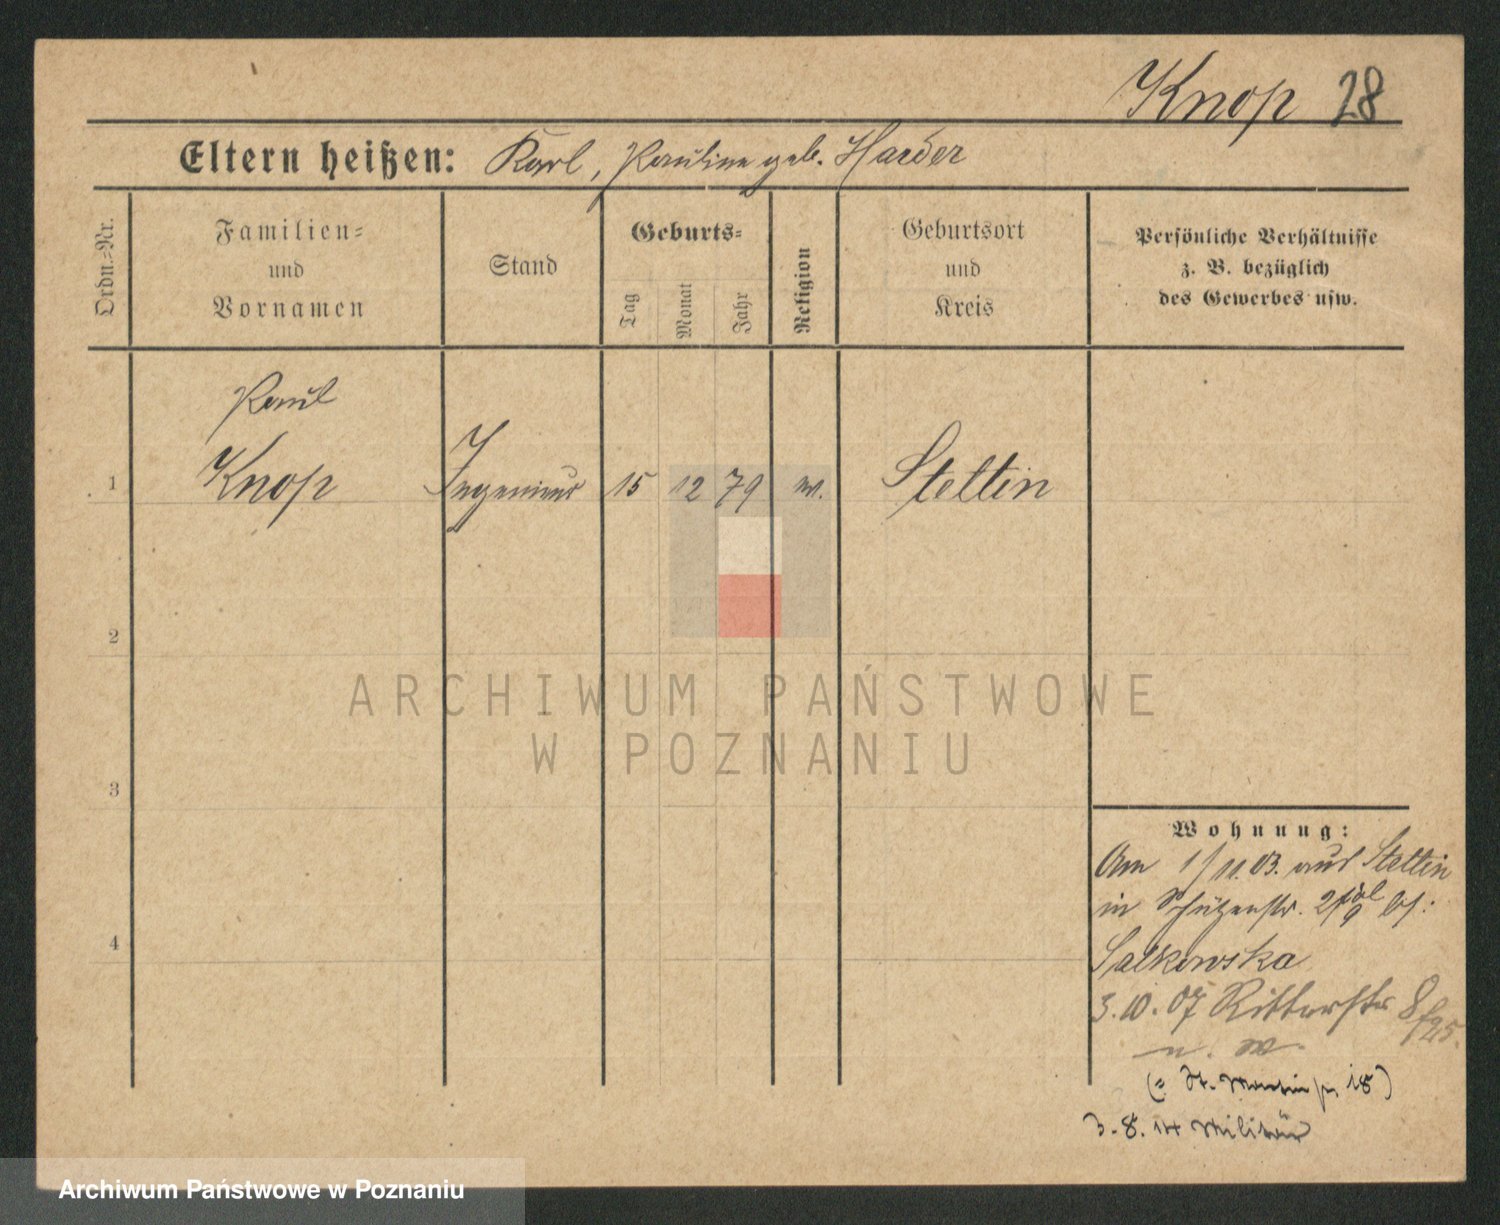 Knop 28
Eltern heißen: Karl, Pauline geb. Harder
Ordn.-Nr.
Familien-
und
Vornamen
Stand
Geburts-
Tag
Monat
Jahr
Religion
Geburtsort
und
Kreis
Persönliche Verhältnisse
z. B. bezüglich
des Gewerbes usw.
Paul
1 Knop Ingenieur 15 12 79 ev. Stettin
2
3
4
ARCHIWUM PAŃSTWOWE
W POZNANIU
Wohnung:
Am 1/11.03. aus Stettin
in Schützenstr.
Salkowska
3.10.07 Ritterstr
(= St. Martinstr 18)
3.8.14 Militär
Archiwum Państwowe w Poznaniu